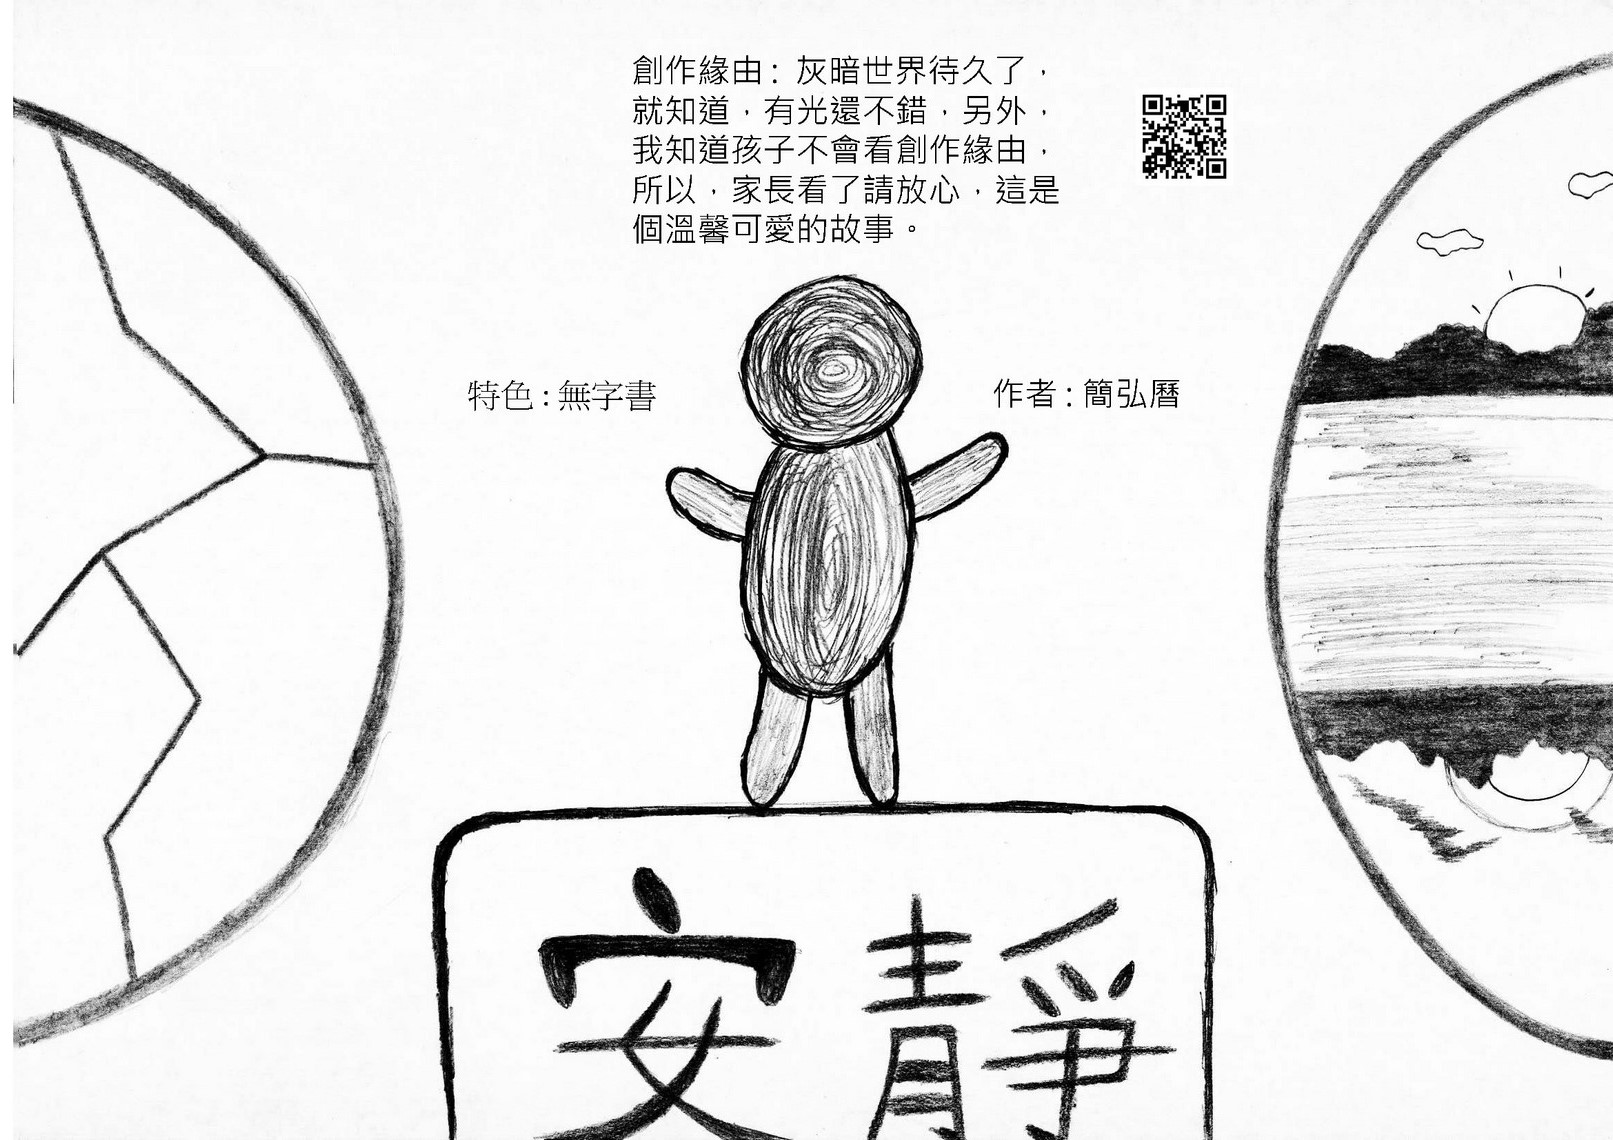 創作緣由：灰暗世界待久了，
就知道，有光還不錯，另外，
我知道孩子不會看創作緣由，
所以，家長看了請放心，這是
個溫馨可愛的故事。
特色：無字書
作者：簡弘曆
安靜